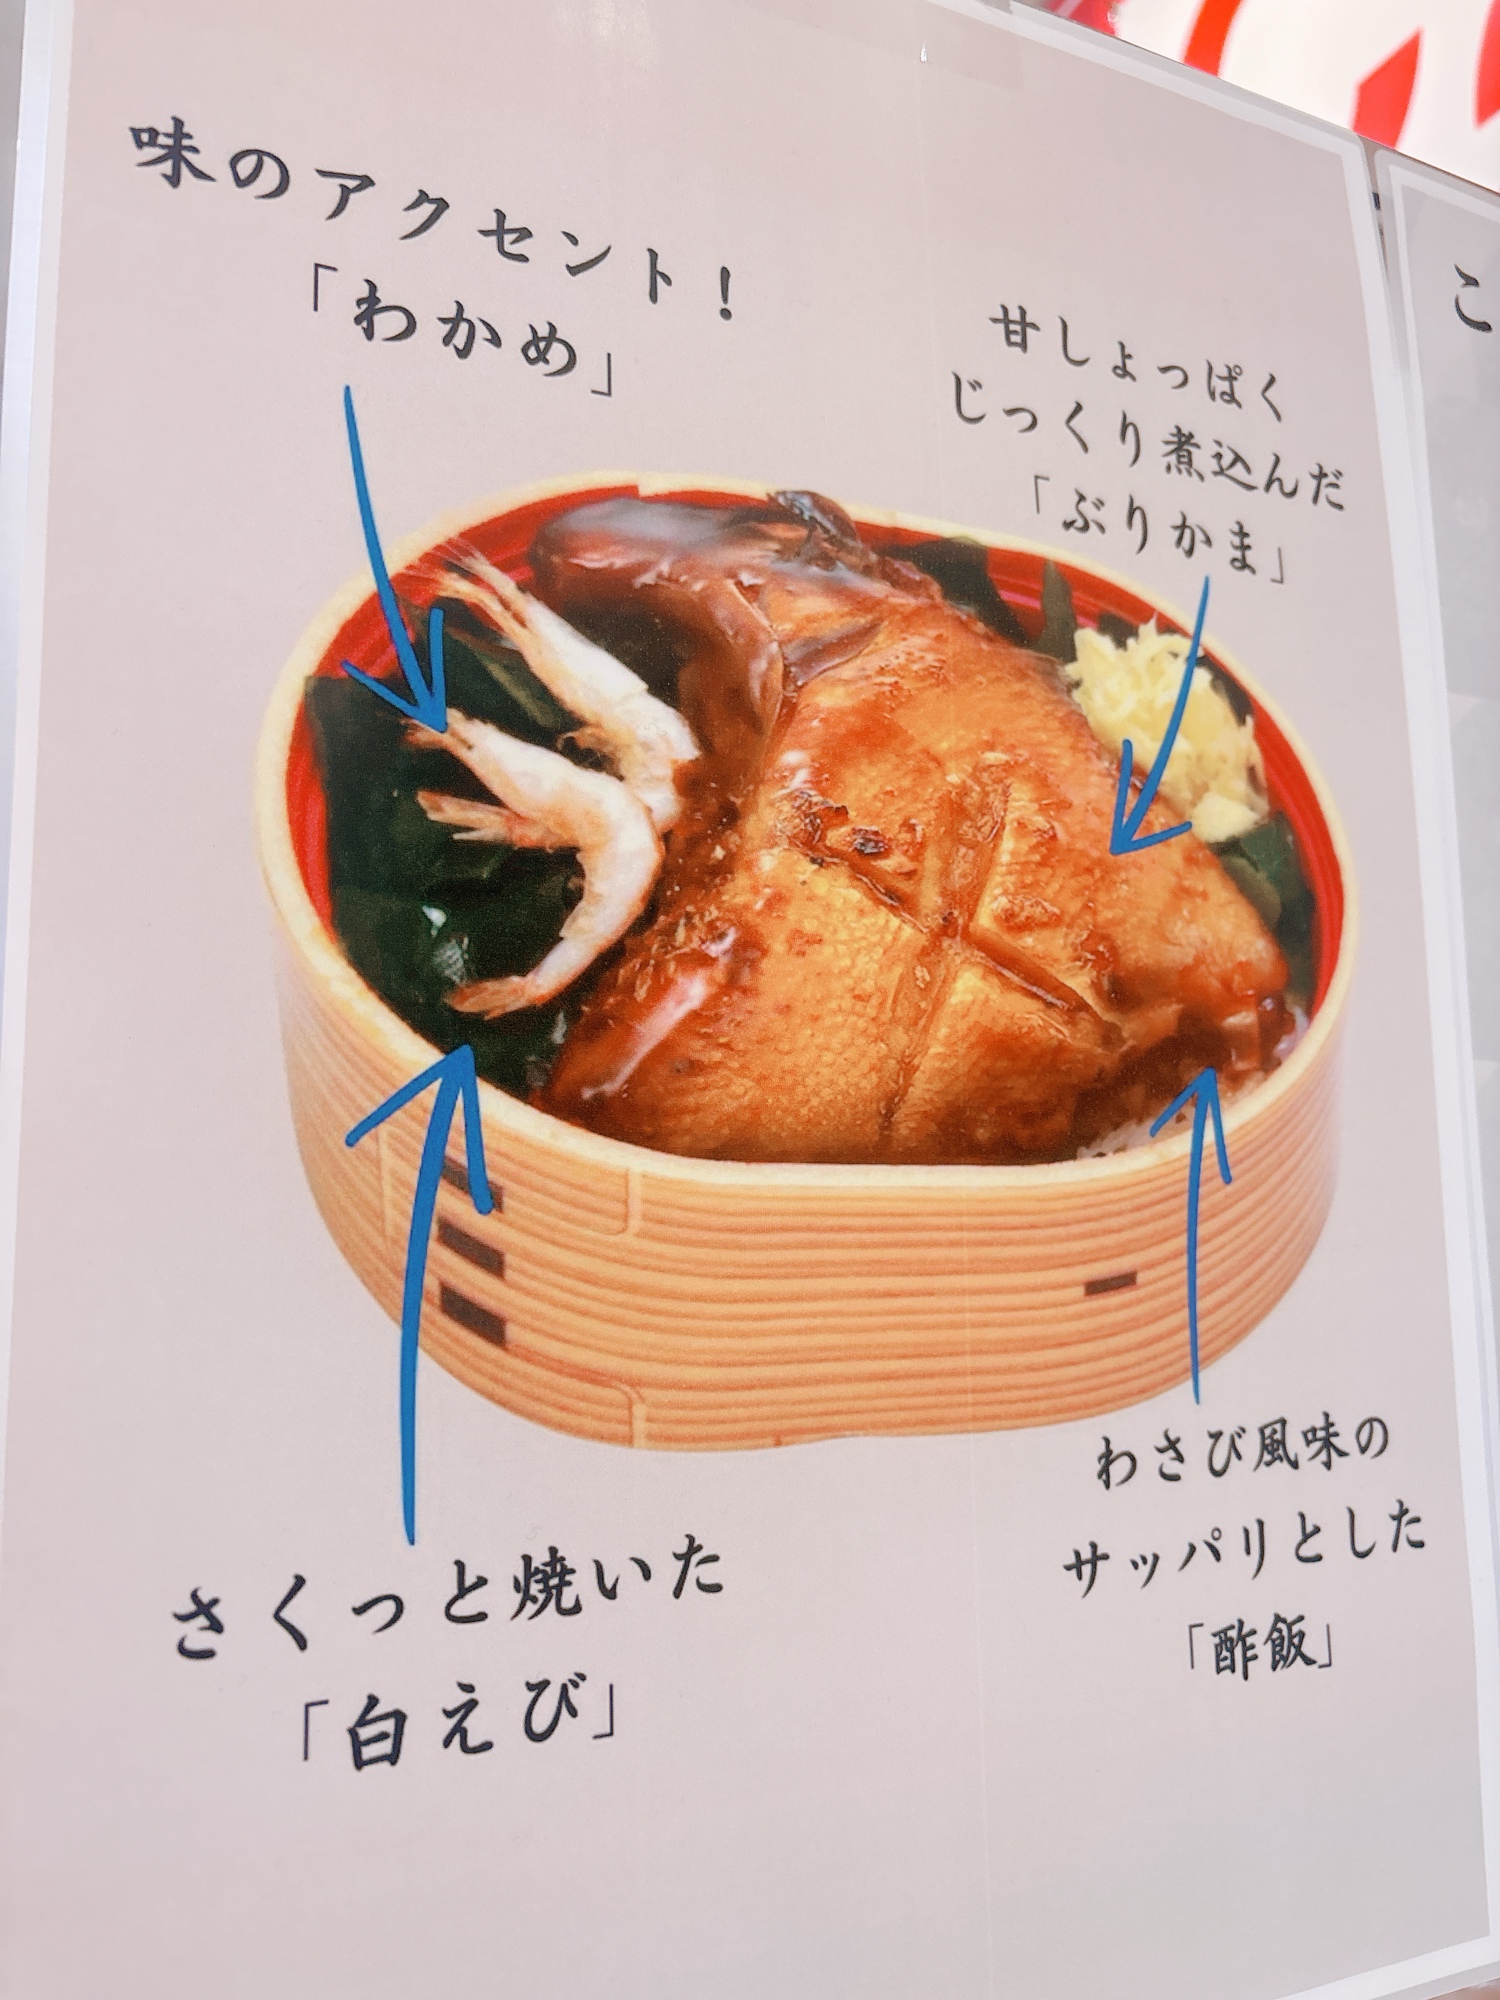 味のアクセント！
「わかめ」
甘しょっぱく
じっくり煮込んだ
「ぶりかま」
さくっと焼いた
「白えび」
わさび風味の
サッパリとした
「酢飯」
こ